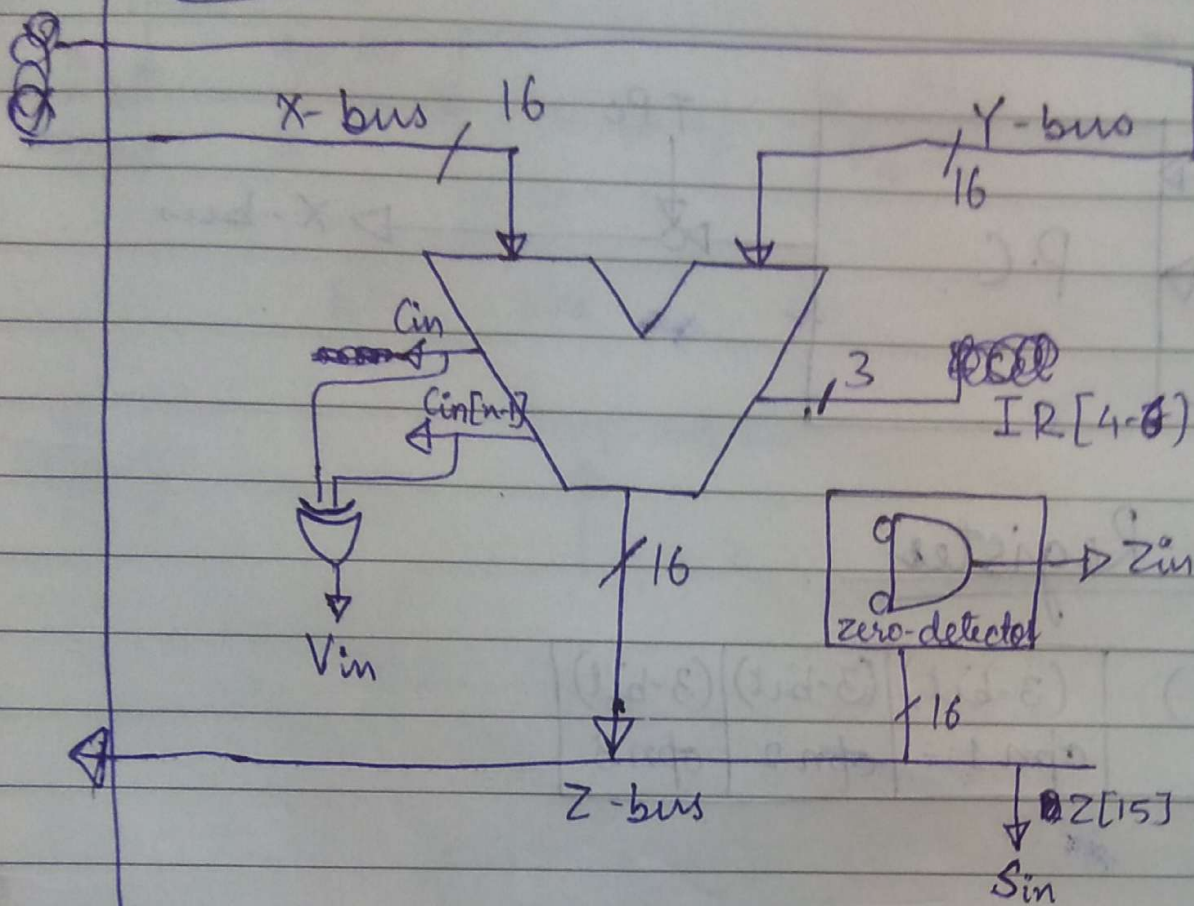 X-bus 16
Y-bus
16
Cin
Cin[n-1]
3
IR[4-6)
16
Zin
zero-detector
Vin
16
Z-bus
Z[15]
Sin